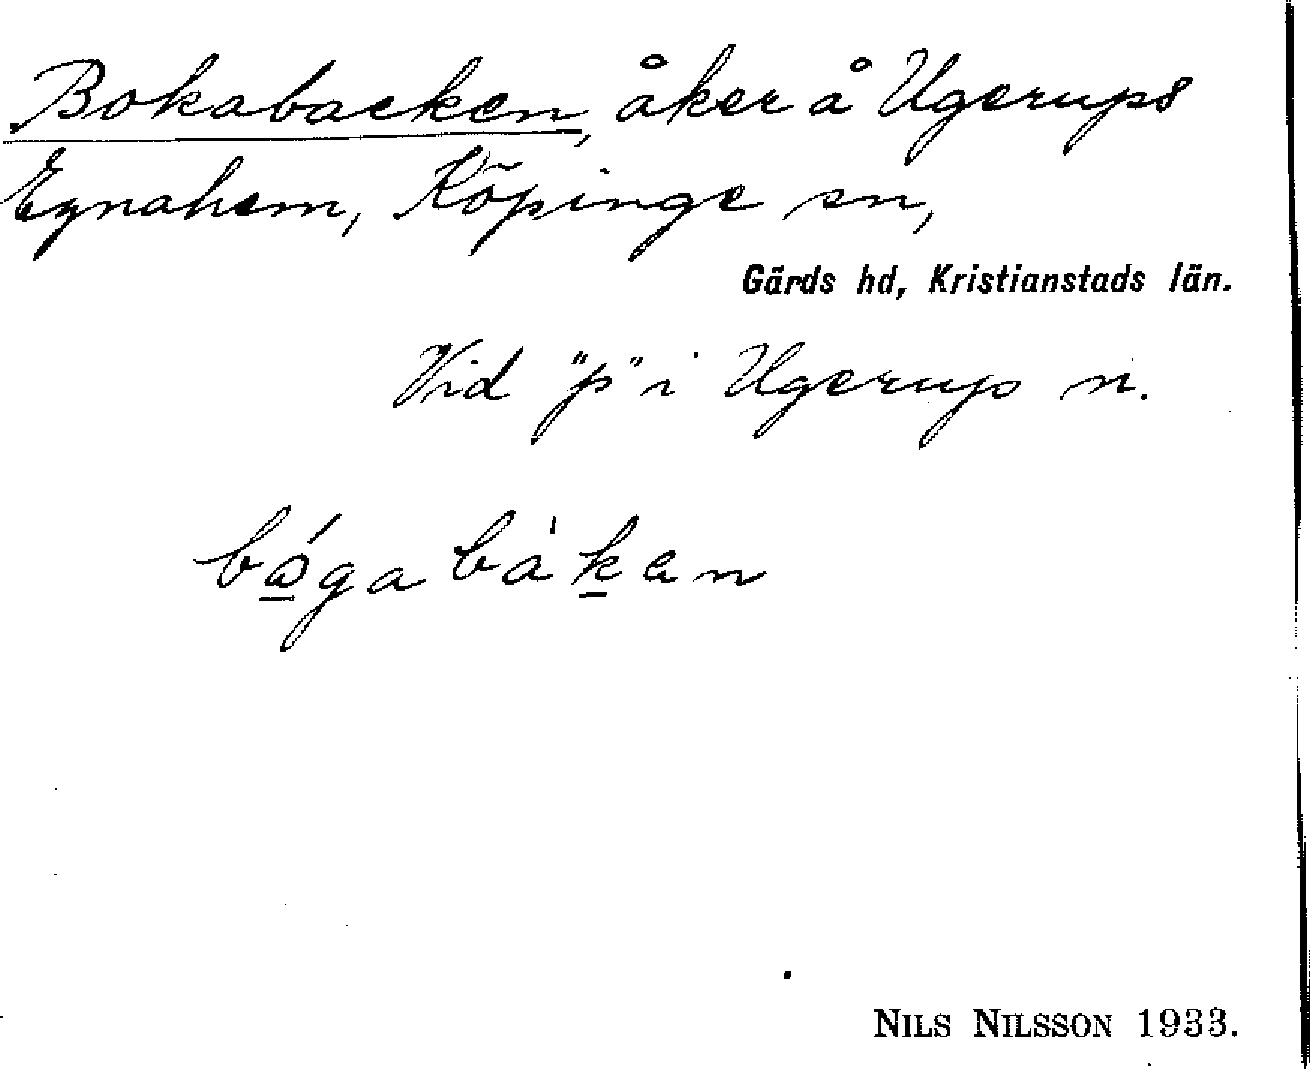 Bokabacken, åker å Ugerups
Egnahem, Köpinge sn,
Gärds hd, Kristianstads län.
Vid "p" i Ugerup n.
bǻga bàkan
NILS NILSSON 1933.